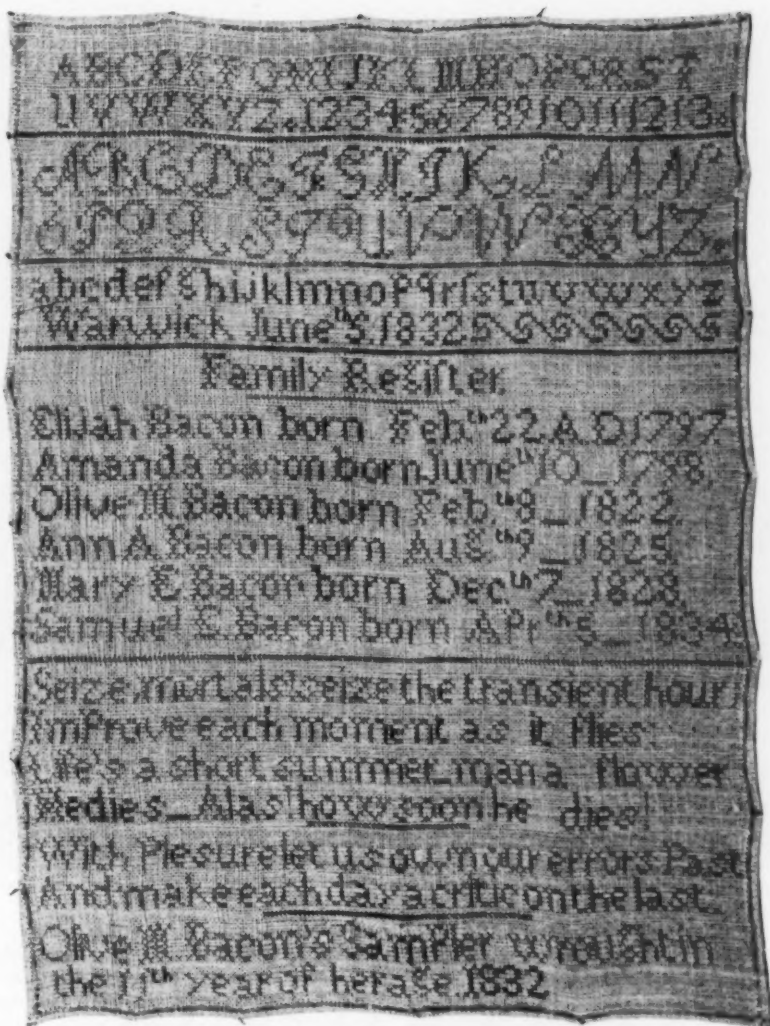 ABCDEFGHIJKLMNOPQRST
UVWXYZ.12345678910111213.
ABCDEFGHIJKLMN
OPQRSTUVWXYZ.
abcdefghijklmnopqrſstuvwxyz
Warwick June th5.1832
Family Regiſter
Elijah Bacon born Feb.th 22.A.D.1797
Amanda Bacon born June th10_1798.
Olive M. Bacon born Feb.th8_1822.
Ann A. Bacon born Aug.th9_1825.
Mary E. Bacon born Dec th7_1828.
Samuel E. Bacon born Apr th5_1834.
Seize, mortals! seize the transient hour;
Improve each moment as it flies:
Life's a short summer_man a flower
He dies_Alas! how soon he dies!
With Plesure let us own our errors Past
And make each day a critic on the last.
Olive M. Bacon's Sampler wrought in
the 11th year of her age.1832